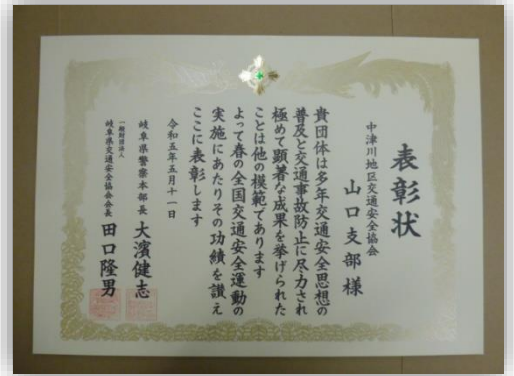 表彰状
中津川地区交通安全協会
山口支部 様
貴団体は多年交通安全思想の
普及と交通事故防止に尽力され
極めて顕著な成果を挙げられた
ことは他の模範であります
よって春の全国交通安全運動の
実施にあたりその功績を讃え
ここに表彰します
令和五年五月十一日
岐阜県警察本部長 大濱健志
一般財団法人
岐阜県交通安全協会会長 田口隆男